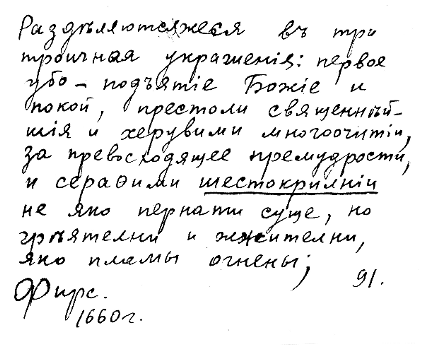 Раздѣляютсяжеся въ три
троичная украшенія: первое
убо – подъятіе Божіе и
покой, престоли священнѣй-
шія и херувими многоочитіи,
за превосходящее премудрости,
и сераѳими шестокрилніи
не яко пернати суще, но
грѣятелни и жжителни,
яко пламы огнены; 91.
Фирс.
1660г.